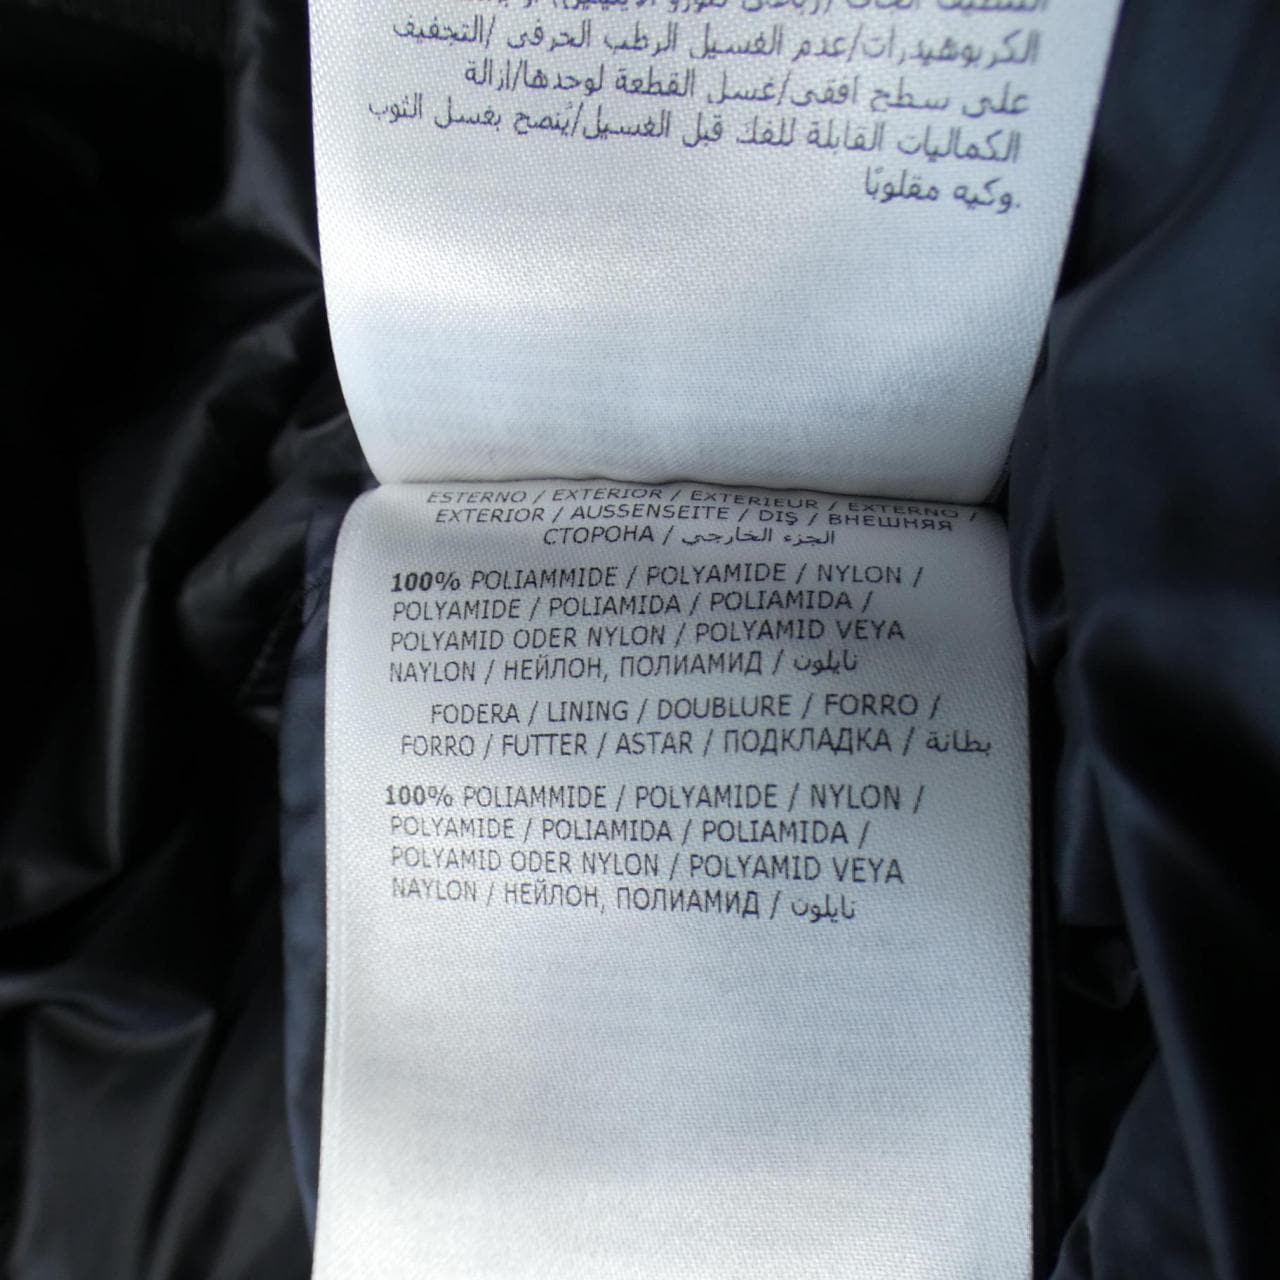 الكربوهيدرات/عدم الغسيل الرطب الحرفى /التجفيف
على سطح افقى/غسل القطعة لوحدها/ازالة
الكماليات القابلة للفك قبل الغسيل/يُنصح بغسل الثوب
وكيه مقلوبًا.
ESTERNO / EXTERIOR / EXTERIEUR / EXTERNO /
EXTERIOR / AUSSENSEITE / DIŞ / ВНЕШНЯЯ
СТОРОНА / الجزء الخارجي
100% POLIAMMIDE / POLYAMIDE / NYLON /
POLYAMIDE / POLIAMIDA / POLIAMIDA /
POLYAMID ODER NYLON / POLYAMID VEYA
NAYLON / НЕЙЛОН, ПОЛИАМИД / نايلون
FODERA / LINING / DOUBLURE / FORRO /
FORRO / FUTTER / ASTAR / ПОДКЛАДКА / بطانة
100% POLIAMMIDE / POLYAMIDE / NYLON /
POLYAMIDE / POLIAMIDA / POLIAMIDA /
POLYAMID ODER NYLON / POLYAMID VEYA
NAYLON / НЕЙЛОН, ПОЛИАМИД / نايلون